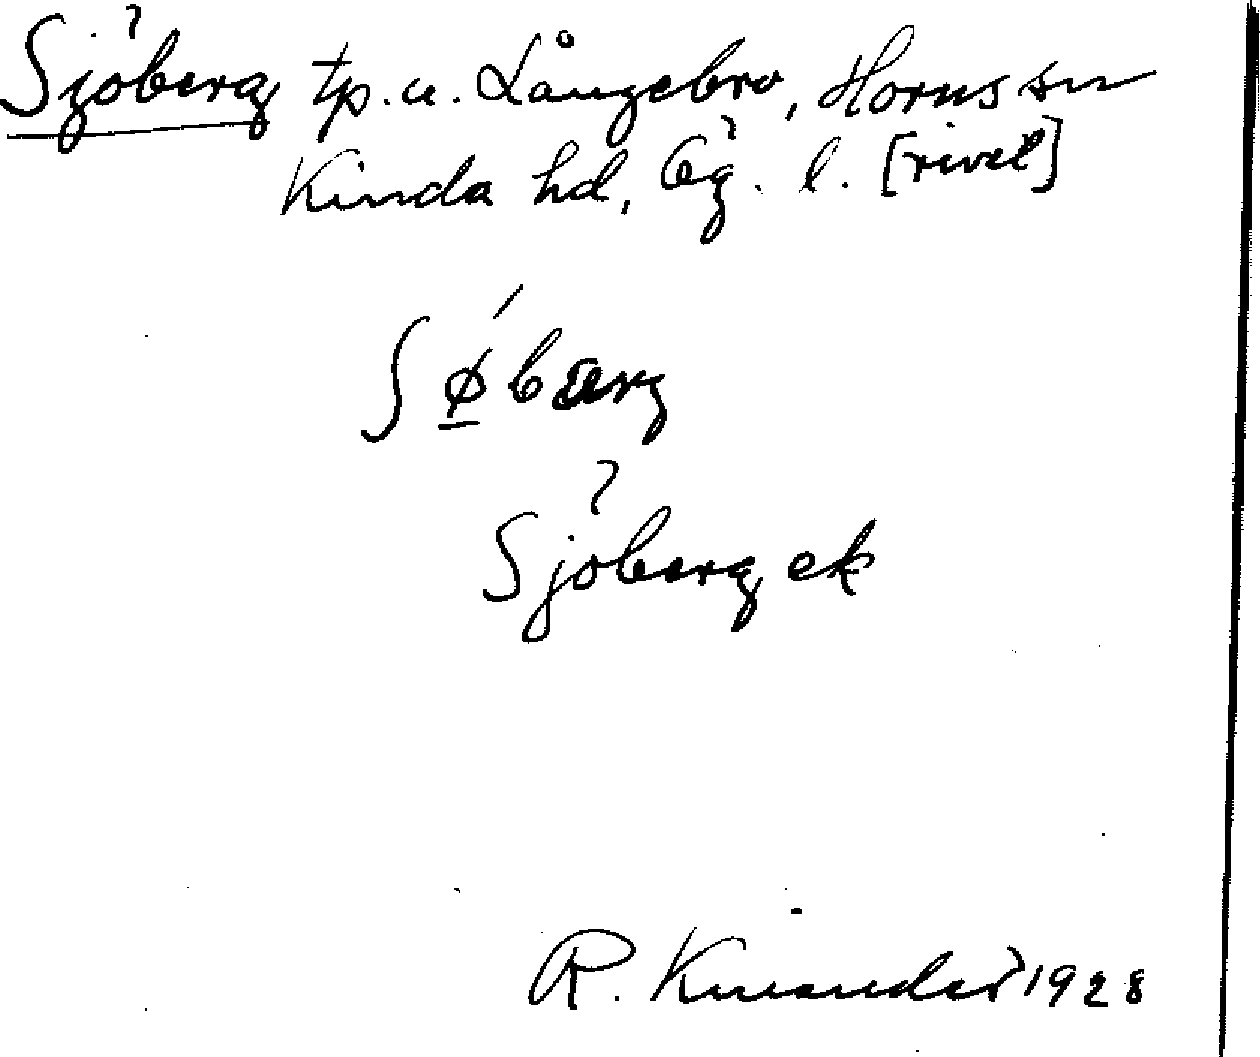 Sjöberg tp. u. Långebro, Horns sn
Kinda hd, Ög. l. [rivet]
ʃǿ̱bærg
Sjöberg ek
R. Kinander 1928